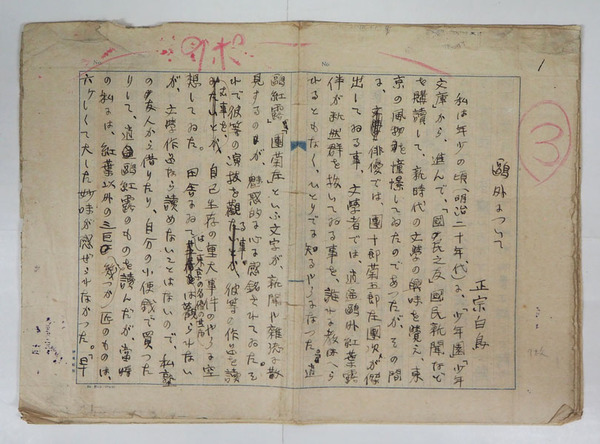 1
③
鷗外について
正宗白鳥
私は年少の頃、(明治二十年代)は、「少年園」「少年
文庫」から、進んで「國民之友」國民新聞など
を購讀して、新時代の文學の眼味を覺え、東
京の風物を憧憬してゐたのであつたが、その間
は、俳優では、團十郎菊五郎左團次が傑
出してゐる事、文學者では、逍遥鷗外紅葉露
伴が斷然群を抜いてゐる事を、誰れに教はら
れるともなく、ひとりでに知るやうになつた。逍
鷗紅露、團菊左といふ文字が、新聞や雜誌に散
見するのが、魅惑的に心に感銘されてゐた。そ
れで彼等の演技を觀る事、彼等の作品を讀
む事が、自己生存の重大事件のやうに空
想してゐた。田舎にゐては東京の名優の芝居は觀られない
が、文學作品なら讀めないことはないので、私は
の友人から借りたり、自分の小使錢で買つた
りして、逍鷗紅露のものを讀んだが、當時
の私には、紅葉以外の三巨匠のものは、
六ケしくて大した妙味が感ぜられなかつた。早